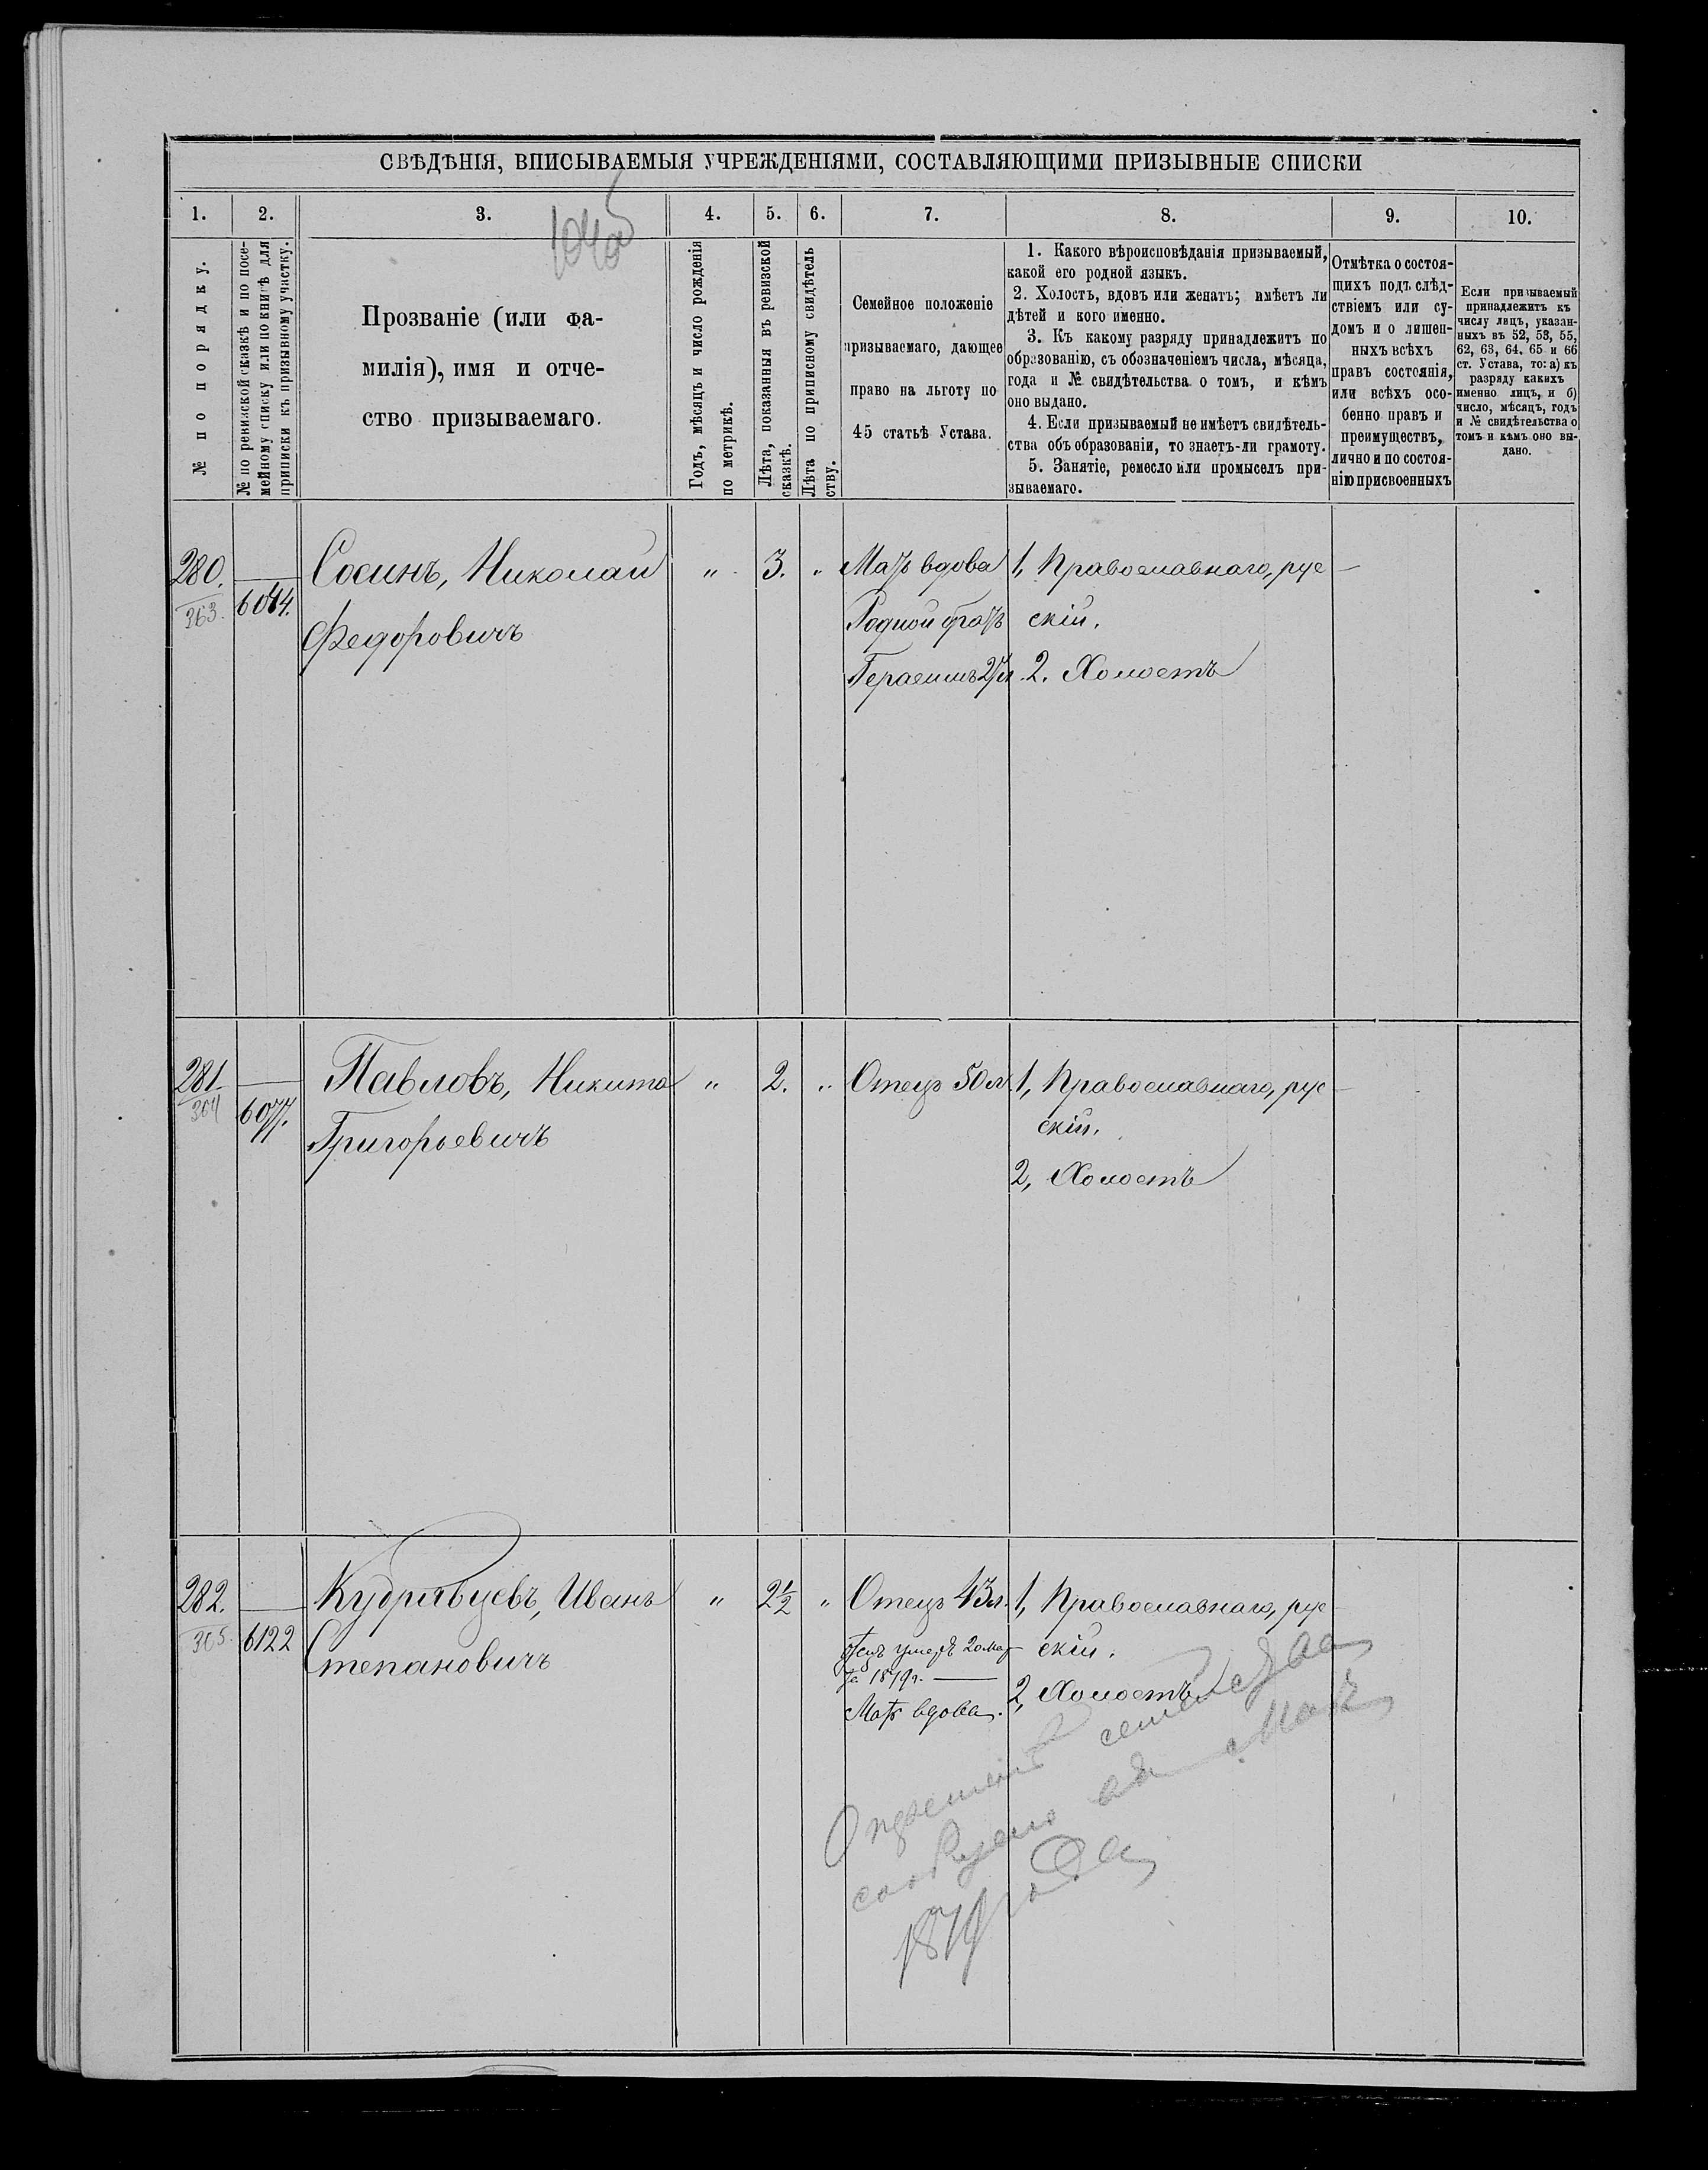 СВѢДѢНІЯ, ВПИСЫВАЕМЫЯ УЧРЕЖДЕНІЯМИ, СОСТАВЛЯЮЩИМИ ПРИЗЫВНЫЕ СПИСКИ
1.
2.
3.
4.
5.
6.
7.
8.
9.
10.
№ по порядку.
№ по ревизской сказкѣ и по посе-
мейному списку или по книгѣ для
приписки къ призывному участку.
Прозваніе (или фа-
милія), имя и отче-
ство призываемаго.
Годъ, мѣсяцъ и число рожденія
по метрикѣ.
Лѣта, показанныя въ ревизской
сказкѣ.
Лѣта по приписному свидѣтель
ству.
Семейное положеніе
призываемаго, дающее
право на льготу по
45 статьѣ Устава.
1. Какого вѣроисповѣданія призываемый,
какой его родной языкъ.
2. Холостъ, вдовъ или женатъ; имѣетъ ли
дѣтей и кого именно.
3. Къ какому разряду принадлежитъ по
образованію, съ обозначеніемъ числа, мѣсяца,
года и № свидѣтельства о томъ, и кѣмъ
оно выдано.
4. Если призываемый не имѣетъ свидѣтель-
ства объ образованіи, то знаетъ-ли грамоту.
5. Занятіе, ремесло или промыселъ при-
зываемаго.
Отмѣтка о состоя-
щихъ подъ слѣд-
ствіемъ или су-
домъ и о лишен-
ныхъ всѣхъ
правъ состоянія,
или всѣхъ осо-
бенно правъ и
преимуществъ,
лично и по состоя-
нію присвоенныхъ
Если призываемый
принадлежитъ къ
числу лицъ, указан-
ныхъ въ 52, 53, 55,
62, 63, 64. 65 и 66
ст. Устава, то: а) къ
разряду какихъ
именно лицъ, и б)
число, мѣсяцъ, годъ
и № свидѣтельства о
томъ и кѣмъ оно вы-
дано.
280.
363.
6044.
Сосинъ, Николай
Федоровичъ
"
3.
"
Мать вдова
Родной братъ
Герасимъ 27 л.
1, Православнаго, рус
скій.
2. Холостъ
—
281
304
6077.
Павловъ, Никита
Григорьевичъ
"
2.
"
Отецъ 50 л.
1, Православнаго, рус
скій.
2, Холостъ
—
282.
305.
6122
Кудрявцевъ, Иванъ
Степановичъ
"
2½
"
Отецъ 43 л.
Отецъ умеръ 20 мар
та 1879 г. —
Мать вдова.
1, Православнаго, рус
скій.
2, Холостъ
—
семейства
1879 года